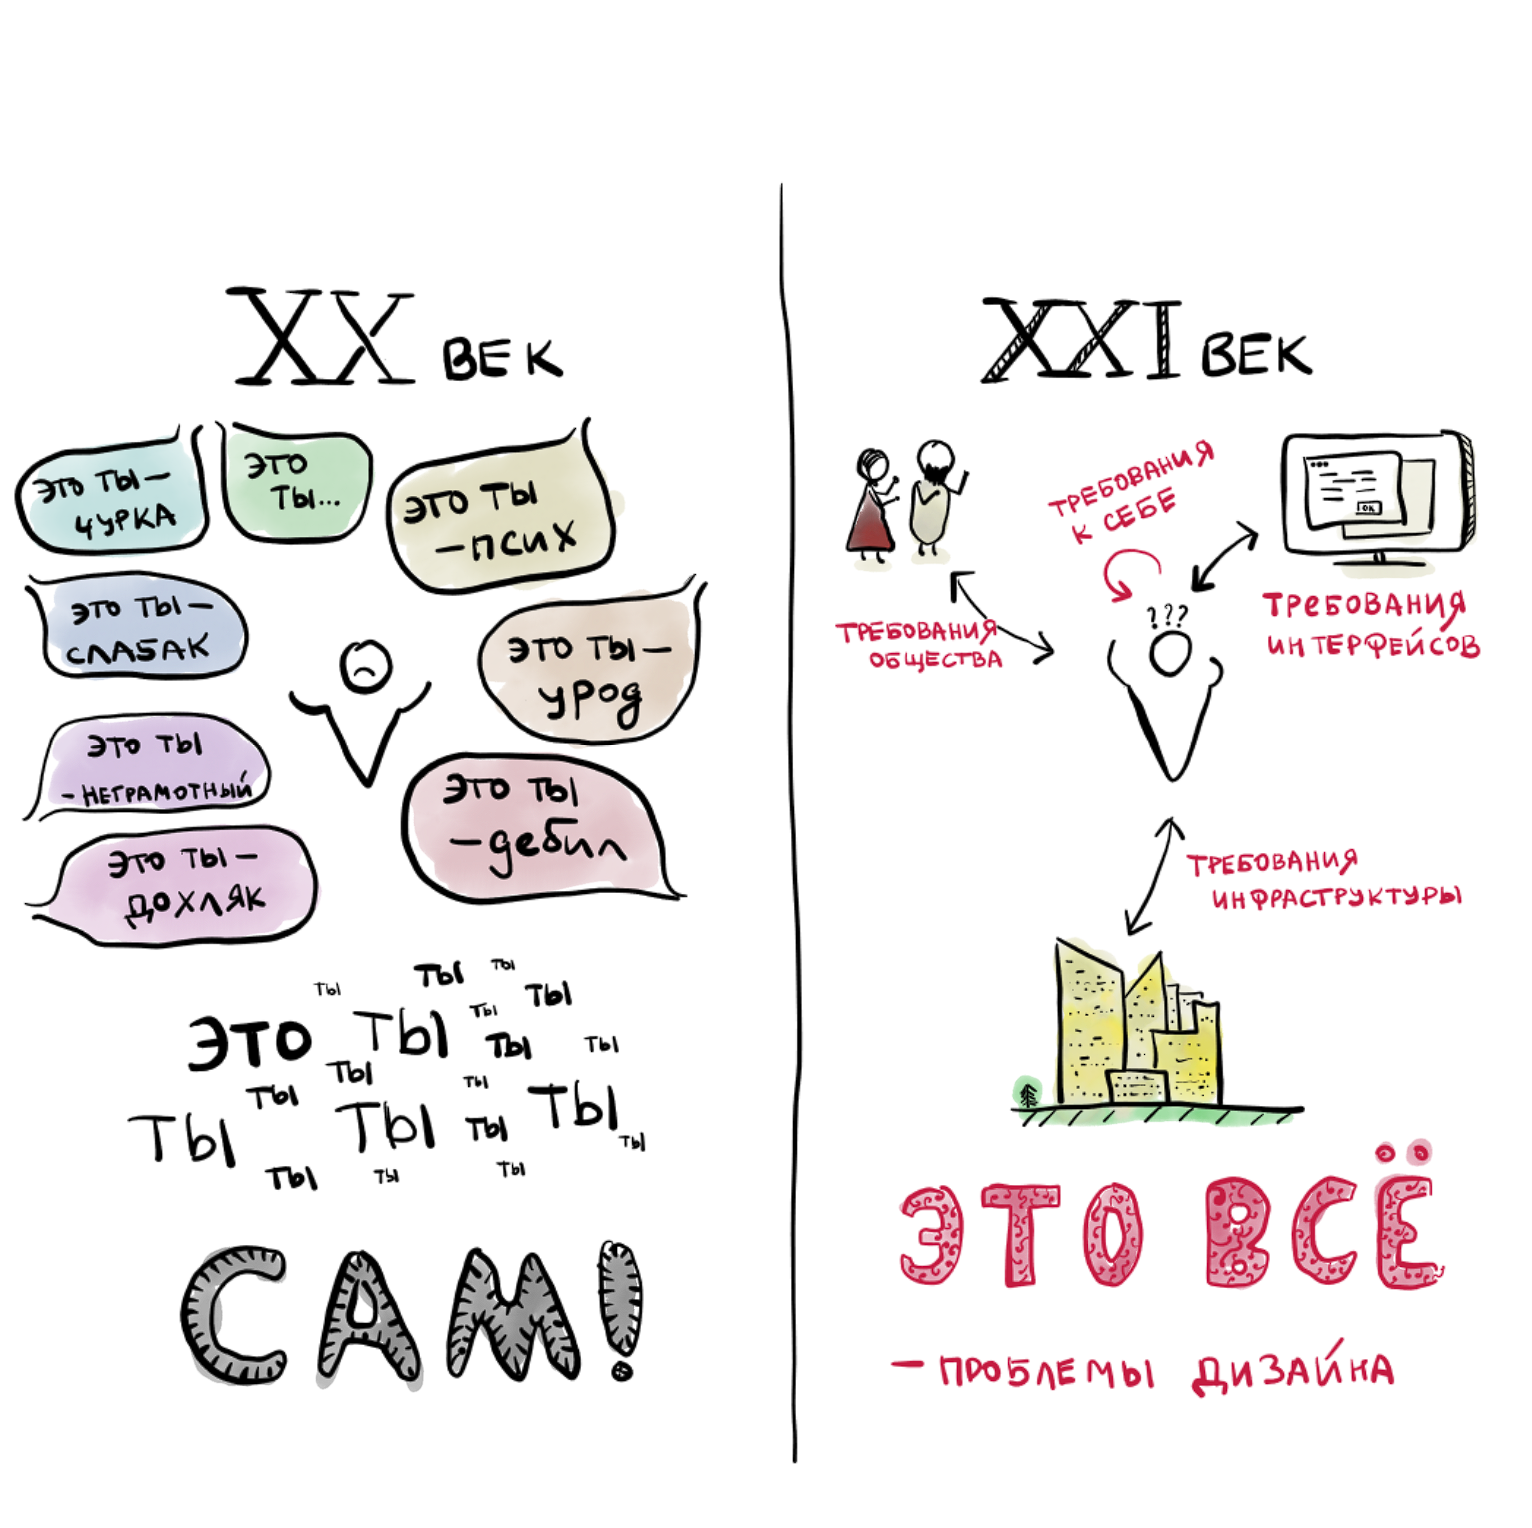 XX ВЕК
ЭТО ТЫ —
ЧУРКА
ЭТО
ТЫ...
ЭТО ТЫ
— ПСИХ
ЭТО ТЫ —
СЛАБАК
ЭТО ТЫ —
УРОД
ЭТО ТЫ
- НЕГРАМОТНЫЙ
ЭТО ТЫ
— дебил
ЭТО ТЫ —
ДОХЛЯК
ТЫ ТЫ ТЫ ТЫ
ЭТО ТЫ ТЫ ТЫ ТЫ
ТЫ ТЫ ТЫ
ТЫ ТЫ ТЫ ТЫ ТЫ
ТЫ ТЫ ТЫ
САМ!
XXI ВЕК
ТРЕБОВАНИЯ
К СЕБЕ
???
ТРЕБОВАНИЯ
ОБЩЕСТВА
OK
ТРЕБОВАНИЯ
ИНТЕРФЕЙСОВ
ТРЕБОВАНИЯ
ИНФРАСТРУКТУРЫ
ЭТО ВСЁ
— ПРОБЛЕМЫ ДИЗАЙНА